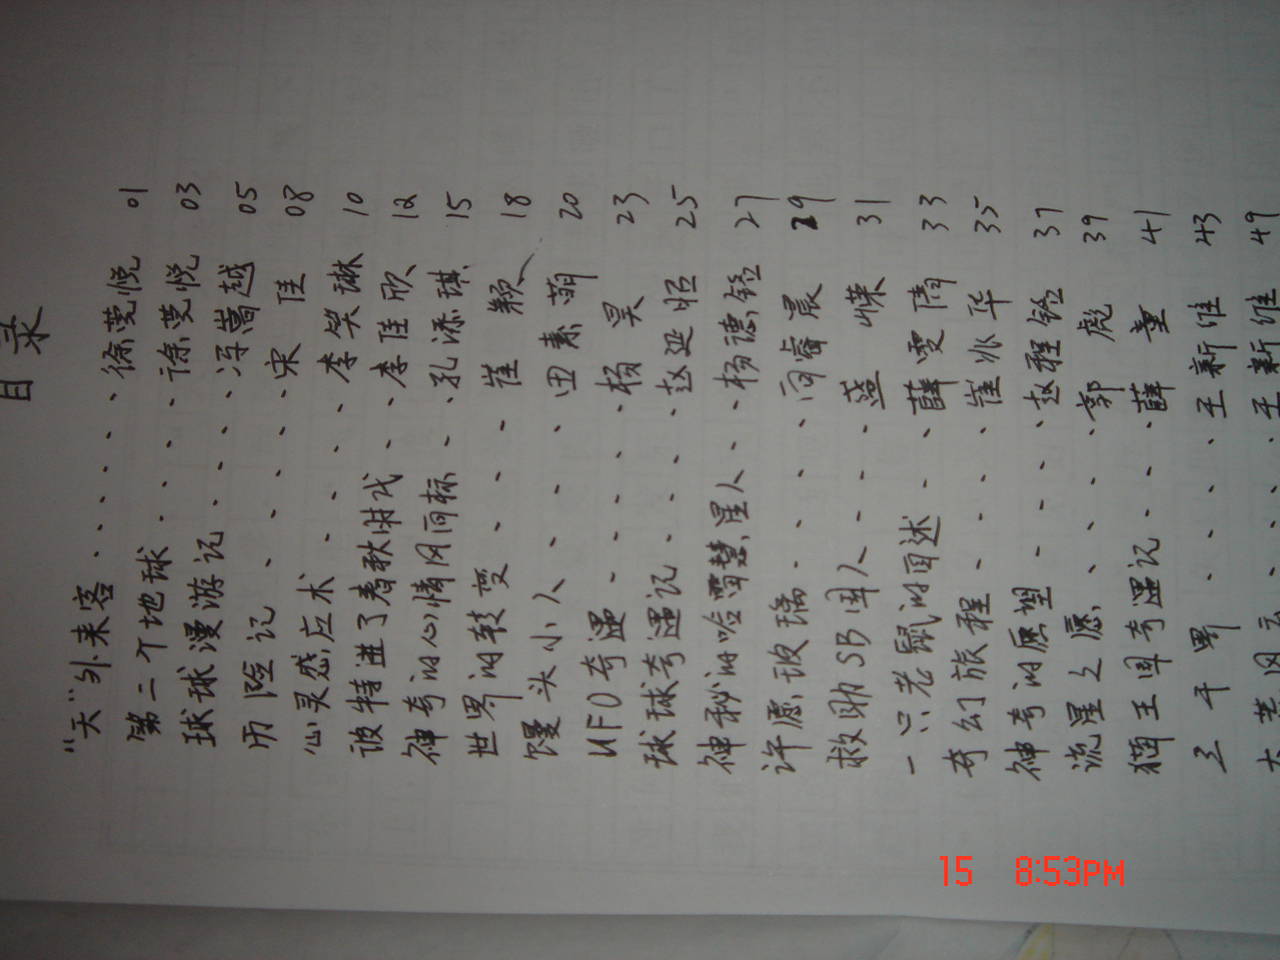 目录
“天”外来客·····徐莞悦 01
第二个地球····徐莞悦 03
球球漫游记····冯嵩越 05
历险记·····宋佳 08
心灵感应术····李笑琳 10
彼特进了春秋时代··李佳欣 12
神奇的心情风向标··孔添琪 15
世界的转变····崔颖 18
馒头小人····田素萌 20
UFO奇遇·····杨昊 23
球球奇遇记····赵延昭 25
神秘的哈雷慧星人··杨德铭 27
许愿玻璃····闫睿晨 29
救助SB国人···蓝嵘 31
一只老鼠的自述···薛雯 33
奇幻旅程····崔兆华 35
神奇的愿望····赵程 37
流星之愿····郭彪 39
猫王国奇遇记···薛童 41
三千男·····王新维 43
王新维 49
15 8:53PM